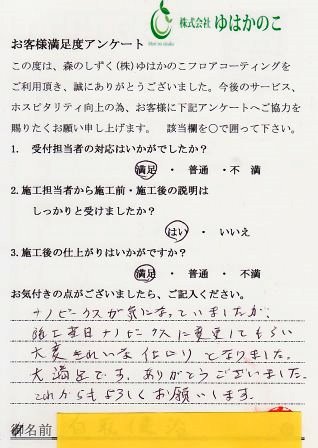 株式会社 ゆはかのこ
お客様満足度アンケート
この度は、森のしずく(株)ゆはかのこフロアコーティングを
ご利用頂き、誠にありがとうございました。今後のサービス、
ホスピタリティ向上の為、お客様に下記アンケートへご協力を
賜りたくお願い申し上げます。 該当欄を〇で囲って下さい。
1. 受付担当者の対応はいかがでしたか?
満足 ・ 普通 ・不 満
2.施工担当者から施工前・施工後の説明は
しっかりと受けましたか?
はい ・ いいえ
3.施工後の仕上がりはいかがですか?
満足 ・ 普通 ・ 不満
お気付きの点がございましたら、ご記入ください。
ナノピークスが気になっていましたが、
施工当日ナノピークスに変更してもらい
大変きれいな仕上り となりました。
大満足です。ありがとうございました。
これからもよろしくお願いします。
御名前